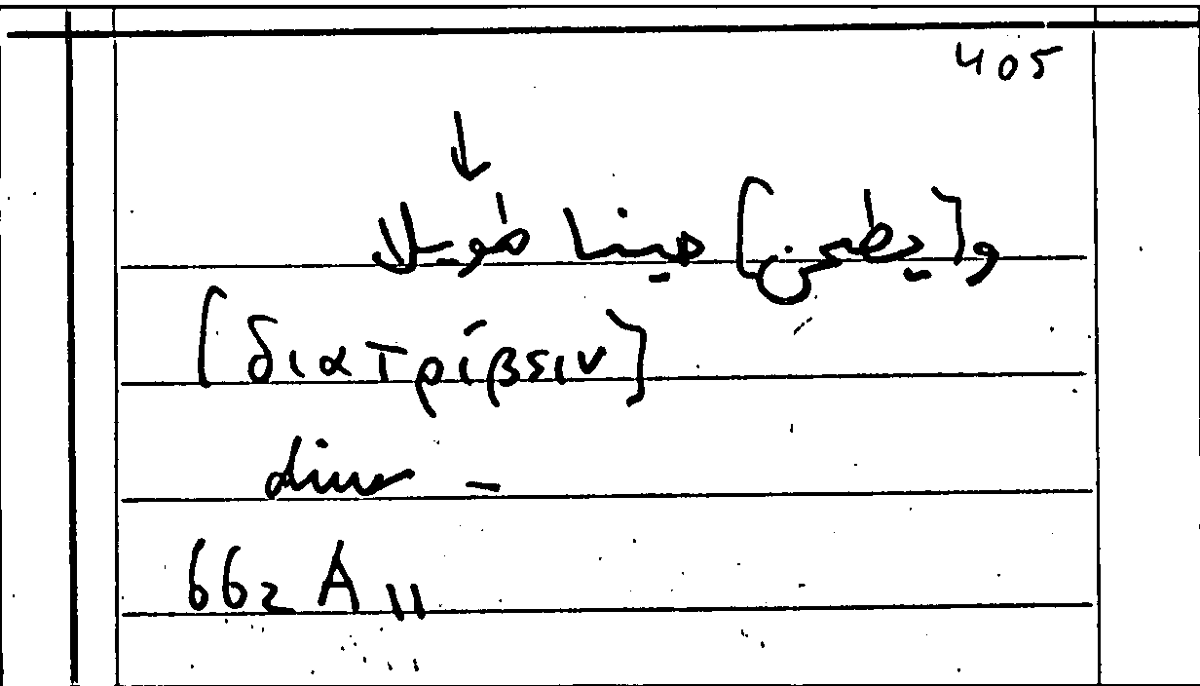 405
↓
و[يطحن] حينا طويلا
[διατρίβειν]
662 A 11